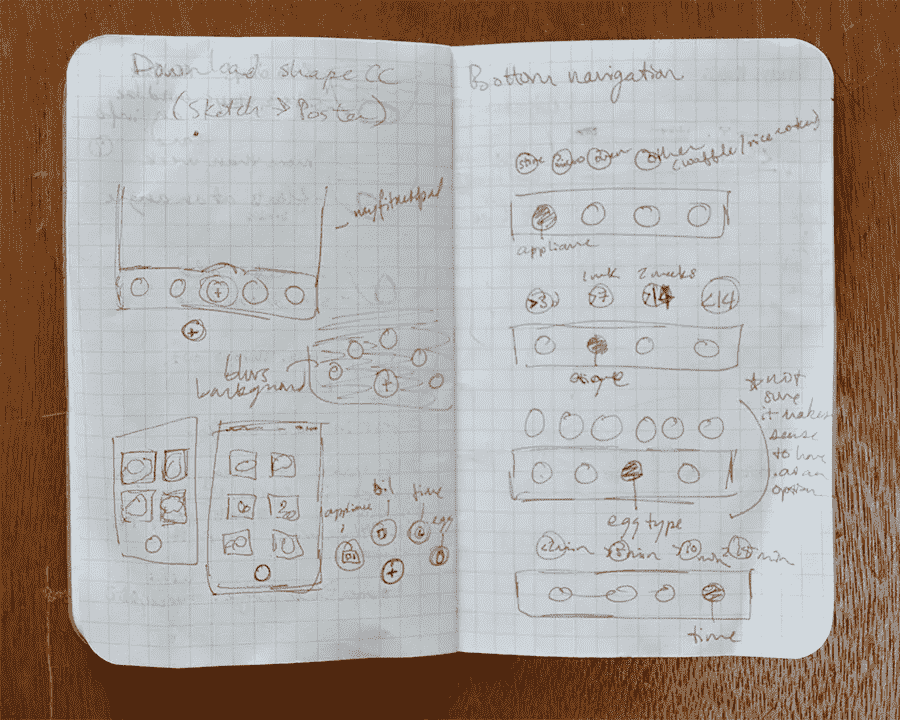 Download shape CC
(Sketch > Poster)
myfitnesspal
blurs
background
appliance
time
egg
Bottom navigation
stove
oven
other
(waffle/rice cooker)
appliance
1 wk
2 weeks
>3
>7
>14
<14
age
egg type
* not
sure
it makes
sense
to have
as an
option
min
min
min
min
time